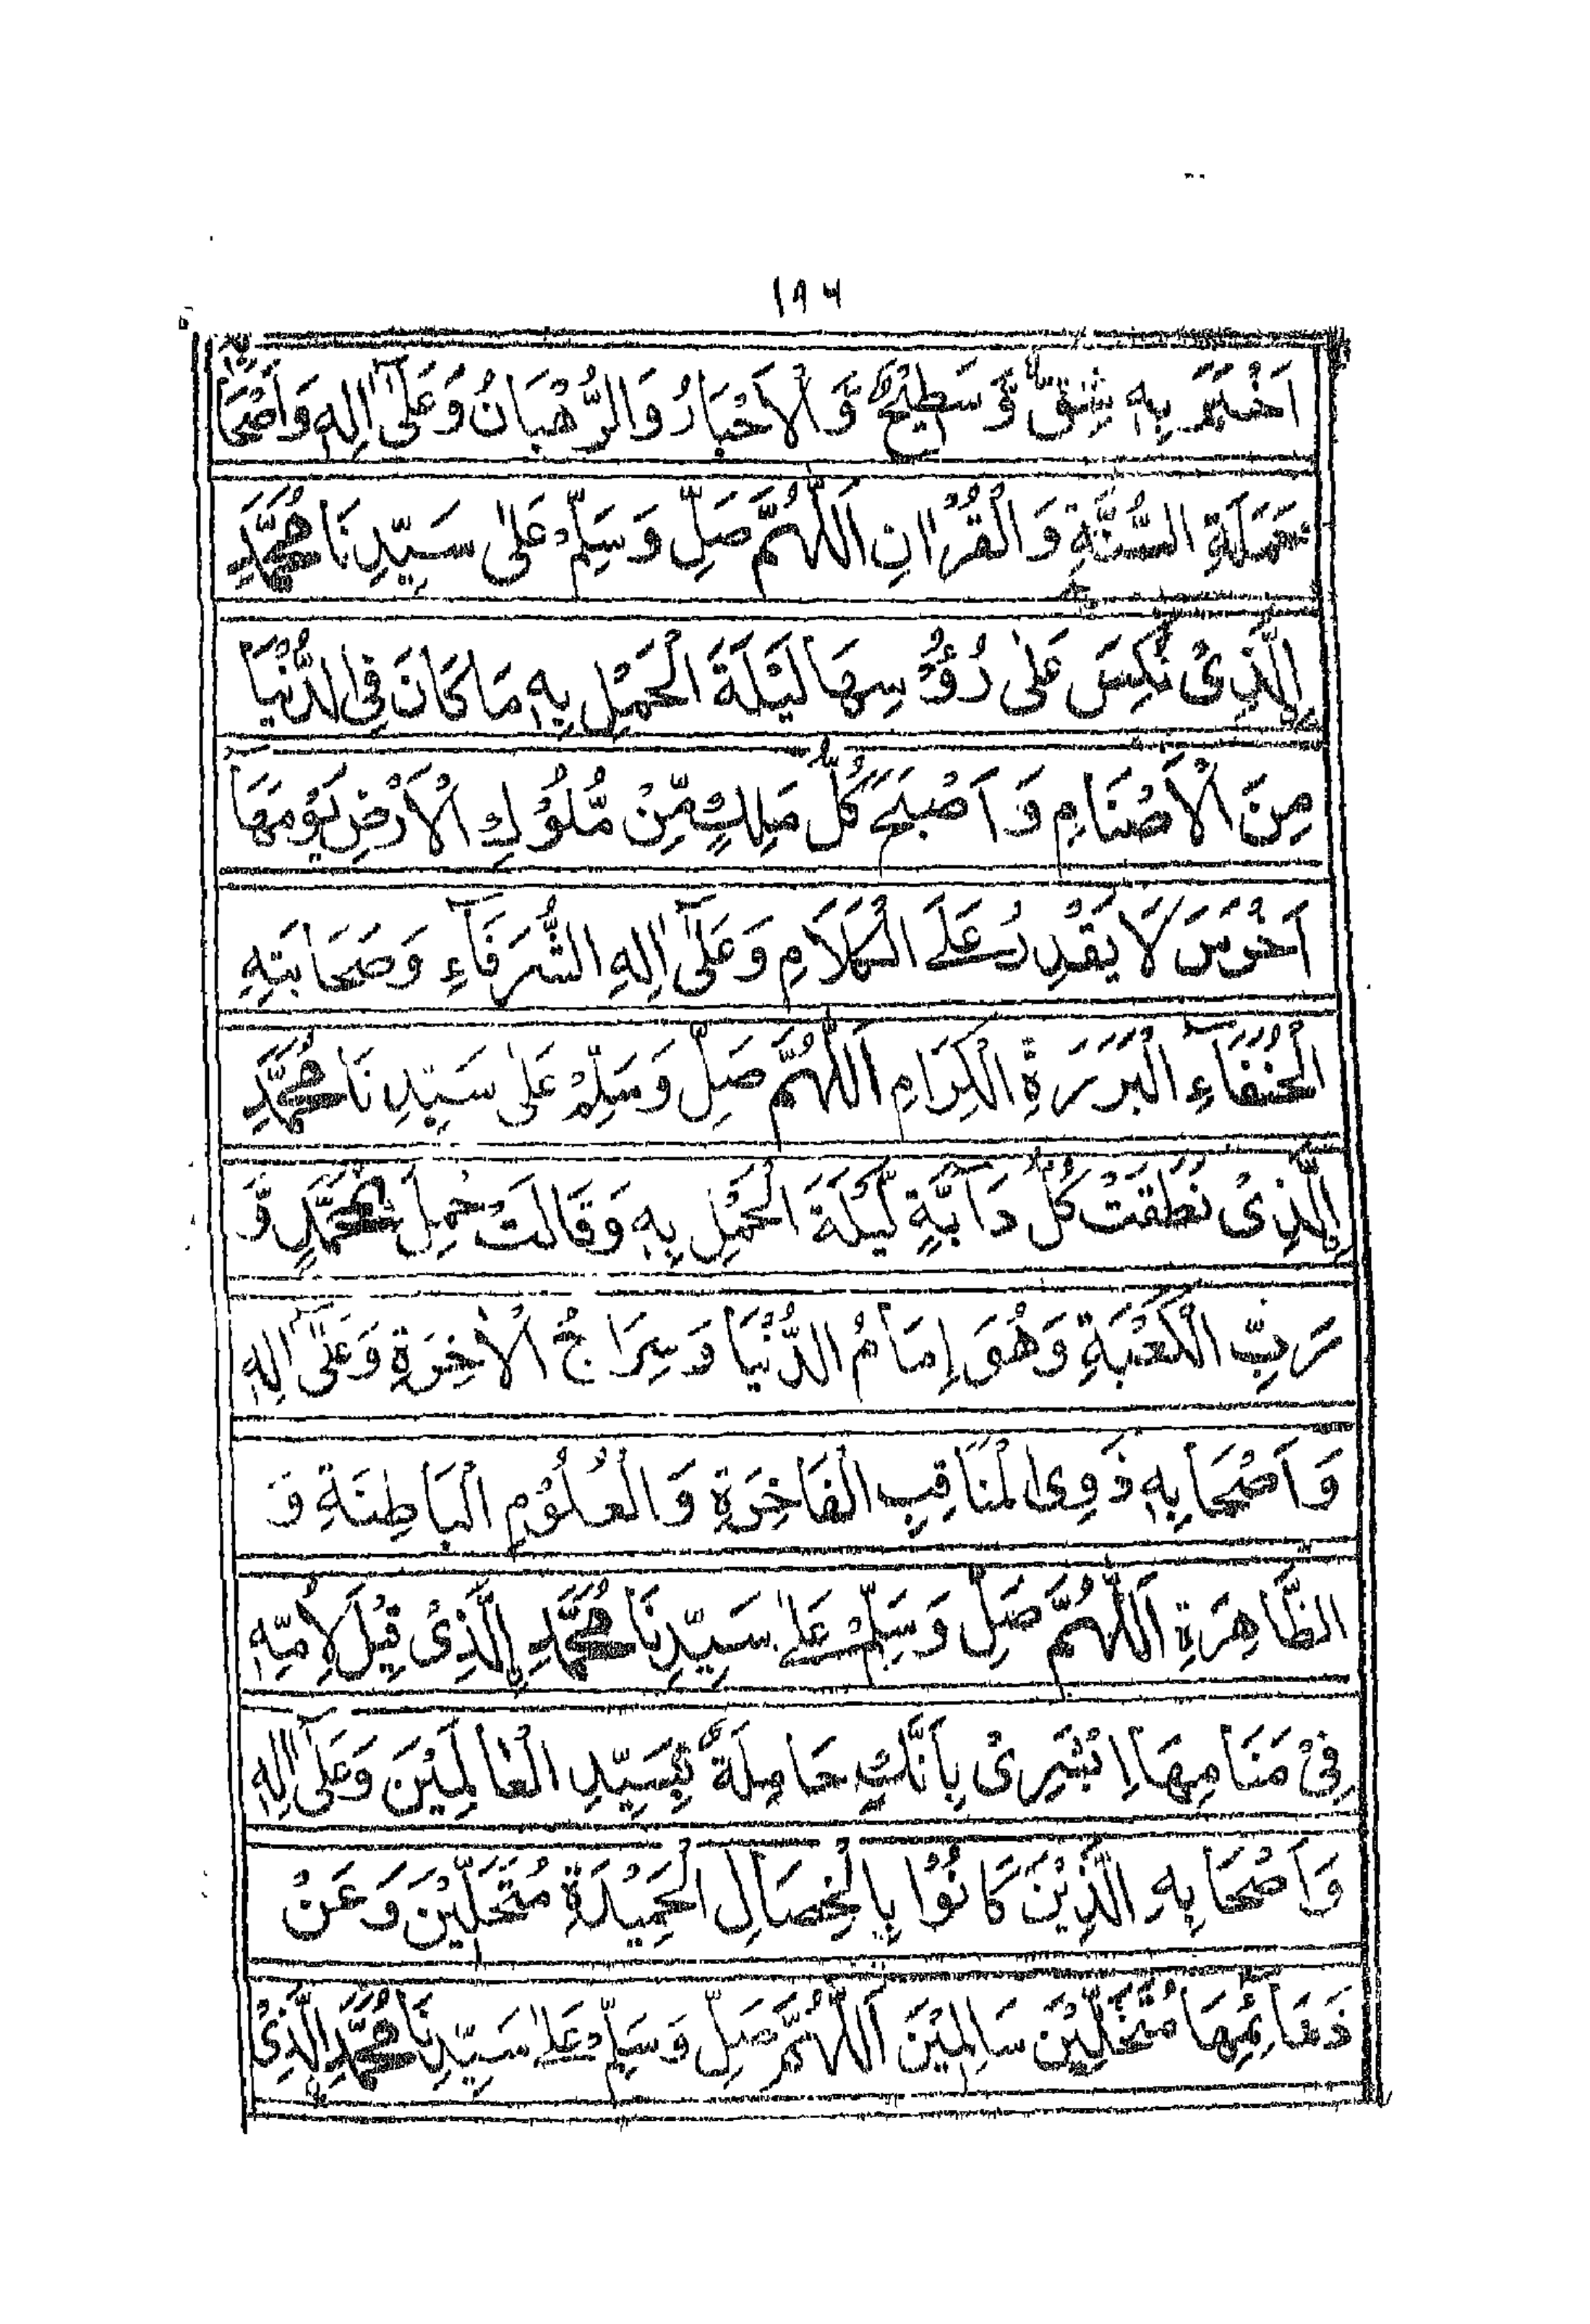 ١٨٦
اَخْبَرَ بِهٖ شِقٌّ وَّ سَطِيْحٌ وَّ الْاَحْبَارُ وَالرُّهْبَانُ وَعَلٰٓى اٰلِهٖ وَاَصْحَابِهٖ
حَمَلَةِ السُّنَّةِ وَالْقُرْاٰنِ اَللّٰهُمَّ صَلِّ وَسَلِّمْ عَلٰى سَيِّدِنَا مُحَمَّدِ
ِالَّذِىْ نُكِسَ عَلٰى رُؤُسِهَا لَيْلَةَ الْحَمْلِ بِهٖ مَا كَانَ فِى الدُّنْيَا
مِنَ الْاَصْنَامِ وَاَصْبَحَ كُلُّ مَلِكٍ مِّنْ مُّلُوْكِ الْاَرْضِ يَوْمَهَا
اَخْرَسَ لَا يَقْدِرُ عَلَے الْكَلَامِ وَعَلٰٓى اٰلِهِ الشُّرَفَآءِ وَصَحَابَتِهِ
الْحُنَفَآءِ الْبَرَرَةِ الْكِرَامِ اَللّٰهُمَّ صَلِّ وَسَلِّمْ عَلٰى سَيِّدِنَا مُحَمَّدِ
ِالَّذِىْ نَطَقَتْ كُلُّ دَآبَّةٍ لَيْلَةَ الْحَمْلِ بِهٖ وَقَالَتْ حُمِلَ بِمُحَمَّدٍ وَّ
رَبِّ الْكَعْبَةِ وَهُوَ اِمَامُ الدُّنْيَا وَسِرَاجُ الْاٰخِرَةِ وَعَلٰٓى اٰلِهٖ
وَاَصْحَابِهٖ ذَوِى الْمَنَاقِبِ الْفَاخِرَةِ وَالْعُلُوْمِ الْبَاطِنَةِ وَ
الظَّاهِرَةِ اَللّٰهُمَّ صَلِّ وَسَلِّمْ عَلٰے سَيِّدِنَا مُحَمَّدِ ِالَّذِىْ قِيْلَ لِاُمِّهٖ
فِىْ مَنَامِهَا اِبْشَرِىْ بِاَنَّكِ حَامِلَةٌ بِسَيِّدِ الْعَالَمِيْنَ وَعَلٰٓى اٰلِهٖ
وَاَصْحَابِهِ الَّذِيْنَ كَانُوْا بِالْخِصَالِ الْحَمِيْدَةِ مُتَحَلِّيْنَ وَعَنْ
ذَمَائِمِهَا مُتَخَلِّيْنَ سَالِمِيْنَ اَللّٰهُمَّ صَلِّ وَسَلِّمْ عَلٰے سَيِّدِنَا مُحَمَّدِ ِالَّذِىْ